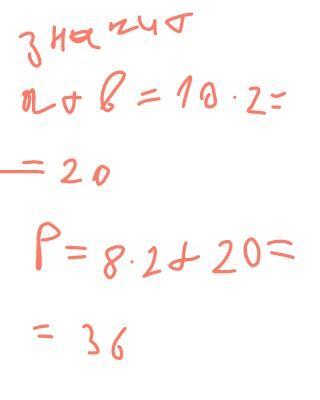 значит
a + b = 10 · 2 =
= 20
P = 8 · 2 + 20 =
= 36